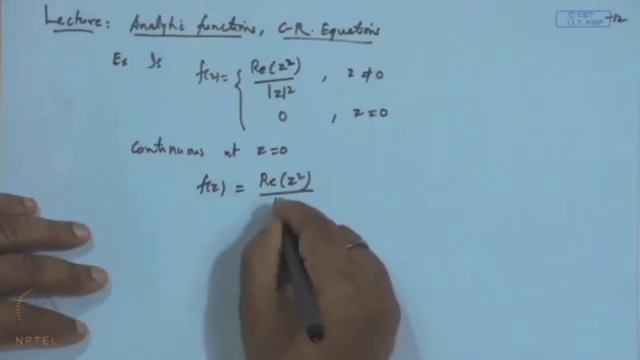 Lecture: Analytic functions, C-R. Equations
© CET
I.I.T. KGP
Ex Is f(z) = { Re(z²) / |z|² , z ≠ 0
0 , z = 0
Continuous at z=0
f(z) = Re(z²)
NPTEL